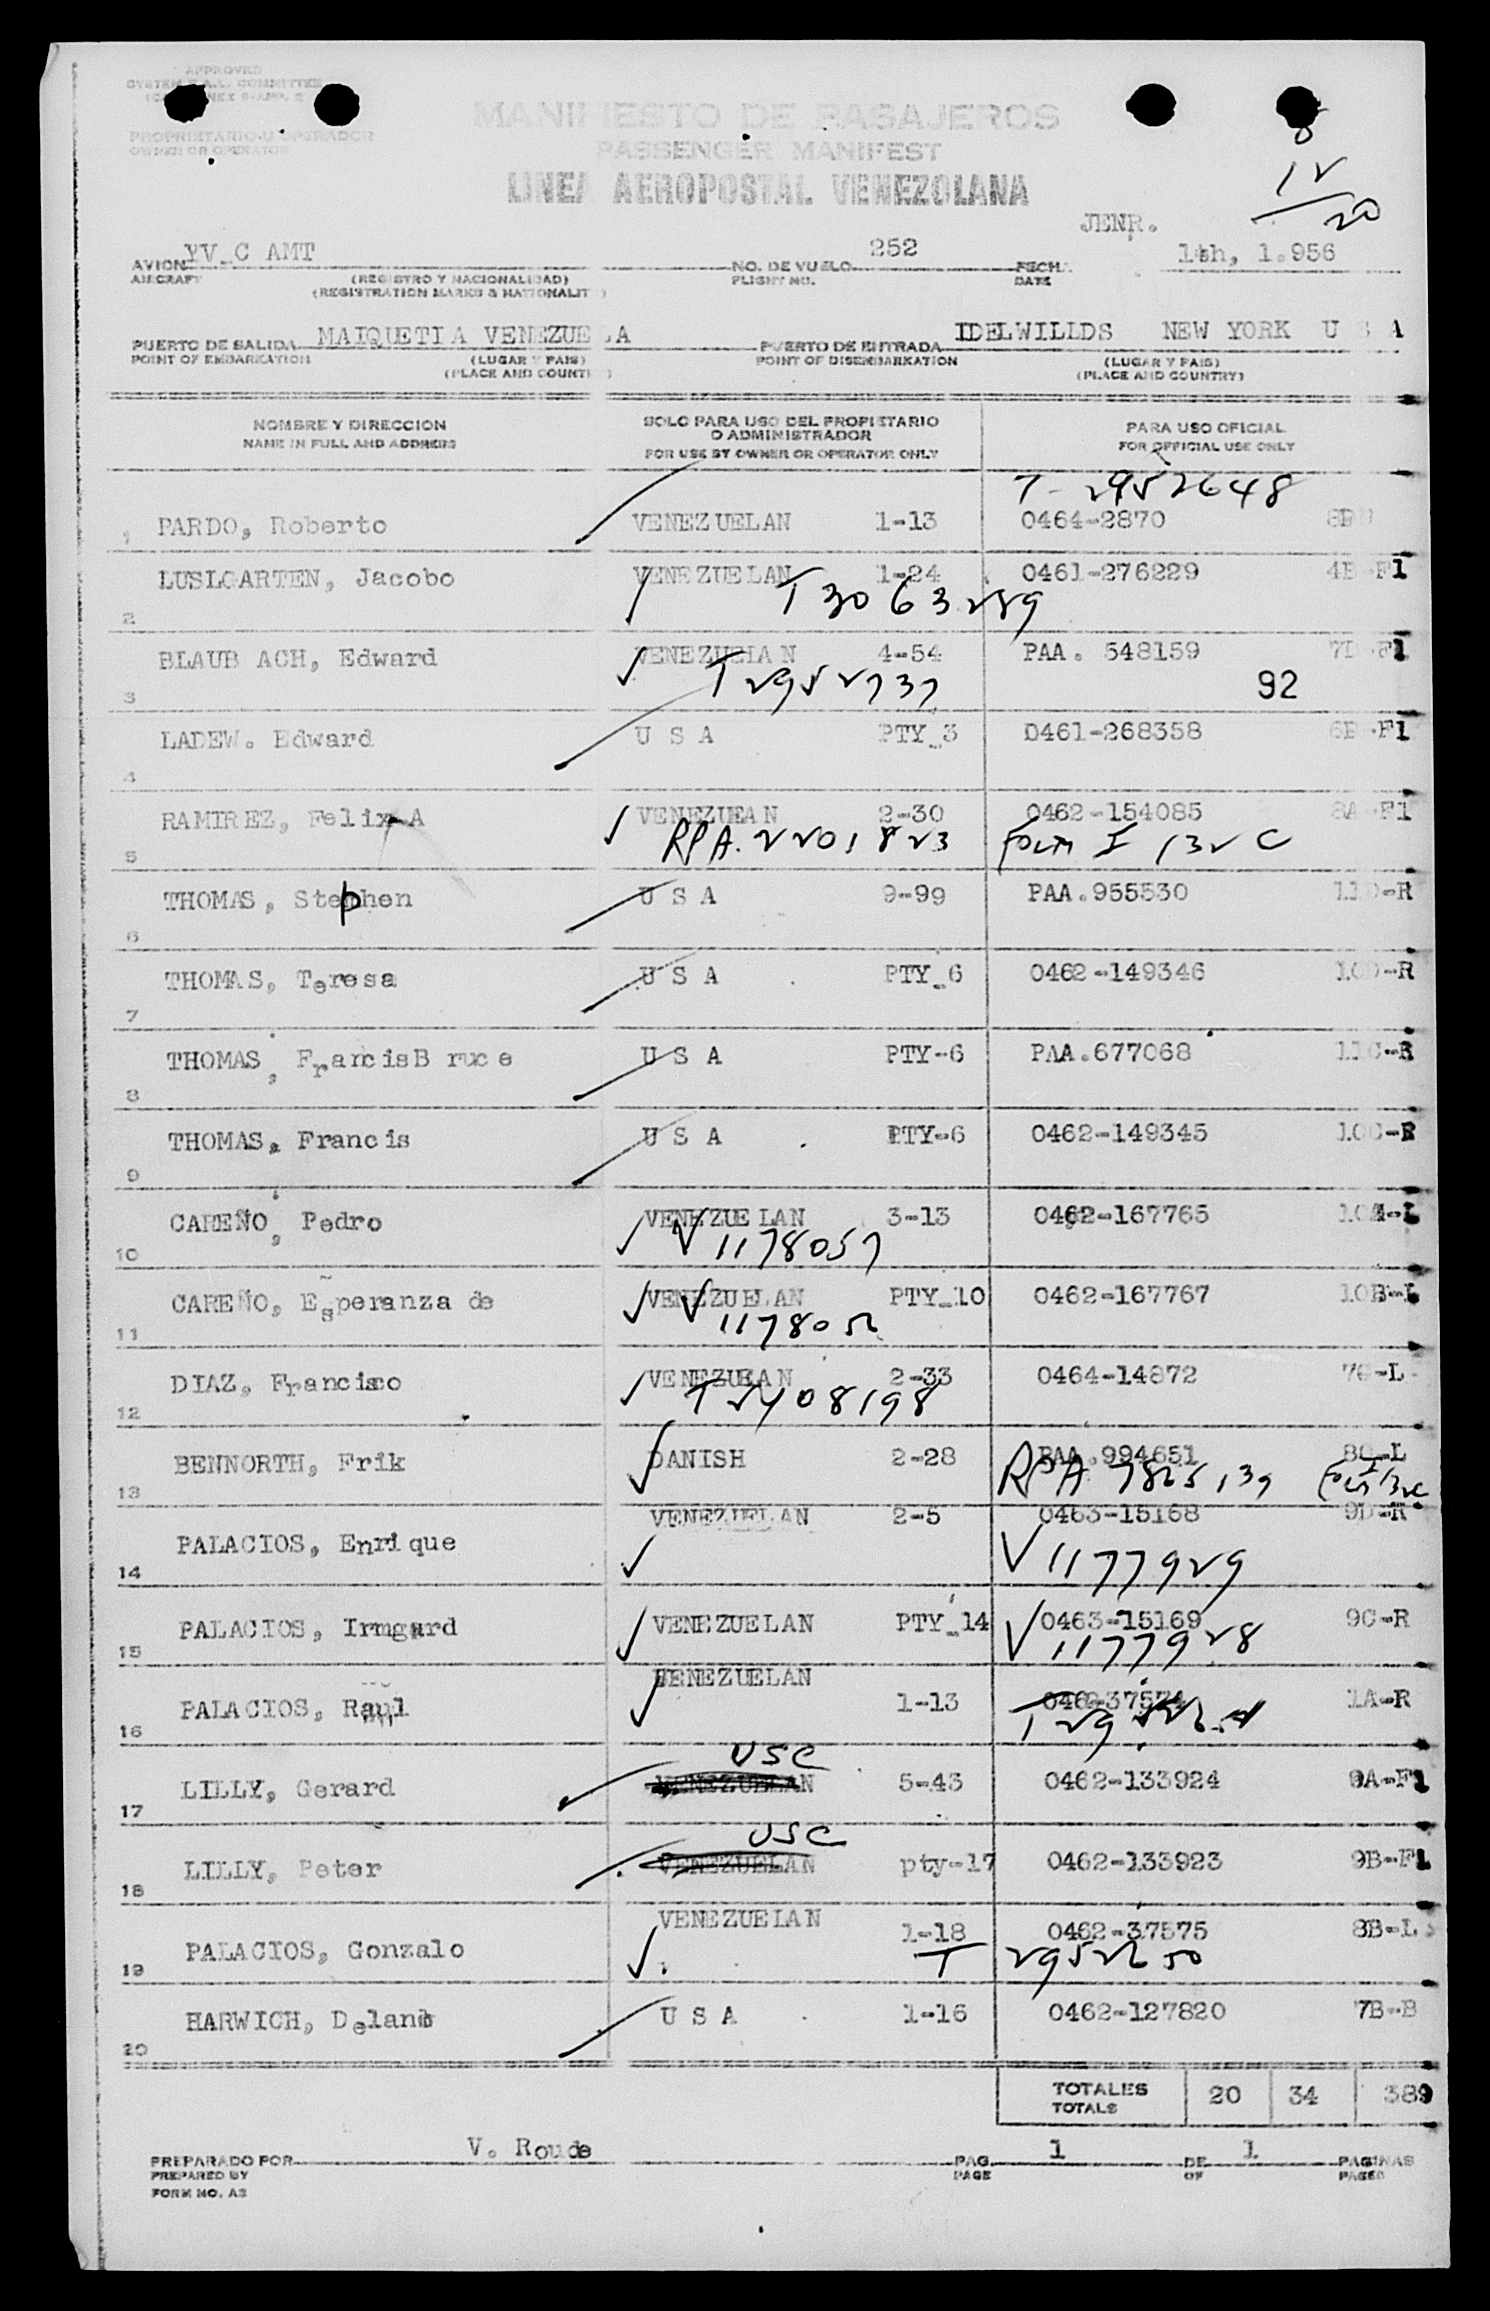 APPROVED
MANIFIESTO DE PASAJEROS
PROPRIETARIO-U OPERADOR
OWNER OR OPERATOR
PASSENGER MANIFEST
LINEA AEROPOSTAL VENEZOLANA
12
20
JENR.
AVION YV_C AMT NO. DE VUELO 252 FECHA 1th, 1.956
AIRCRAFT (REGISTRO Y NACIONALIDAD) FLIGHT NO. DATE
(REGISTRATION MARKS & NATIONALITY)
PUERTO DE SALIDA MAIQUETIA VENEZUELA PUERTO DE ENTRADA IDELWILLDS NEW YORK U S A
POINT OF EMBARKATION (LUGAR Y PAIS) POINT OF DISEMBARKATION (LUGAR Y PAIS)
(PLACE AND COUNTRY) (PLACE AND COUNTRY)
NOMBRE Y DIRECCION SOLO PARA USO DEL PROPIETARIO O ADMINISTRADOR PARA USO OFICIAL
NAME IN FULL AND ADDRESS FOR USE BY OWNER OR OPERATOR ONLY FOR OFFICIAL USE ONLY
T-2952648
1 PARDO, Roberto VENEZUELAN 1-13 0464-2870
2 LUSLGARTEN, Jacobo VENEZUELAN 1-24 0461-276229 4B-F1
T3063289
3 BLAUB ACH, Edward VENEZUELAN 4-54 PAA. 548159 7D-F1
T2952737 92
4 LADEW. Edward U S A PTY_3 0461-268358 6B-F1
5 RAMIREZ, Felix A VENEZUEAN 2-30 0462-154085 8A-F1
RPA.2201823 Form I 132 C
6 THOMAS, Stephen U S A 9-99 PAA.955530 11D-R
7 THOMAS, Teresa U S A PTY_6 0462-149346 10D-R
8 THOMAS, FrancisB ruce U S A PTY-6 PAA.677068 11C-R
9 THOMAS, Francis U S A PTY-6 0462-149345 10C-R
10 CAREÑO, Pedro VENEZUELAN 3-13 0462-167765 10A-L
V 1178057
11 CAREÑO, Esperanza de VENEZUELAN PTY_10 0462-167767 10B-L
V 1178052
12 DIAZ, Francisco VENEZUEAN 2-33 0464-14872 7C-L
13 BENNORTH, Frik DANISH 2-28 PAA.994651 8C-L
RPA
14 PALACIOS, Enrique VENEZUELAN 2-5 0463-15168 9D-R
V 1177929
15 PALACIOS, Irmgard VENEZUELAN PTY_14 0463-15169 9C-R
V 1177928
16 PALACIOS, Raul VENEZUELAN 1-13 0462-37574 1A-R
USC
17 LILLY, Gerard VENEZUELAN 5-43 0462-133924 9A-F1
USC
18 LILLY, Peter VENEZUELAN pty-17 0462-133923 9B-F1
19 PALACIOS, Gonzalo VENEZUELAN 1-18 0462-37575 8B-L
T 2952650
20 HARWICH, Deland U S A 1-16 0462-127820 7B-B
TOTALES 20 34 389
TOTALS
PREPARADO POR V. Roude PAG. 1 DE 1 PAGINAS
PREPARED BY PAGE OF PAGES
FORM NO. A2